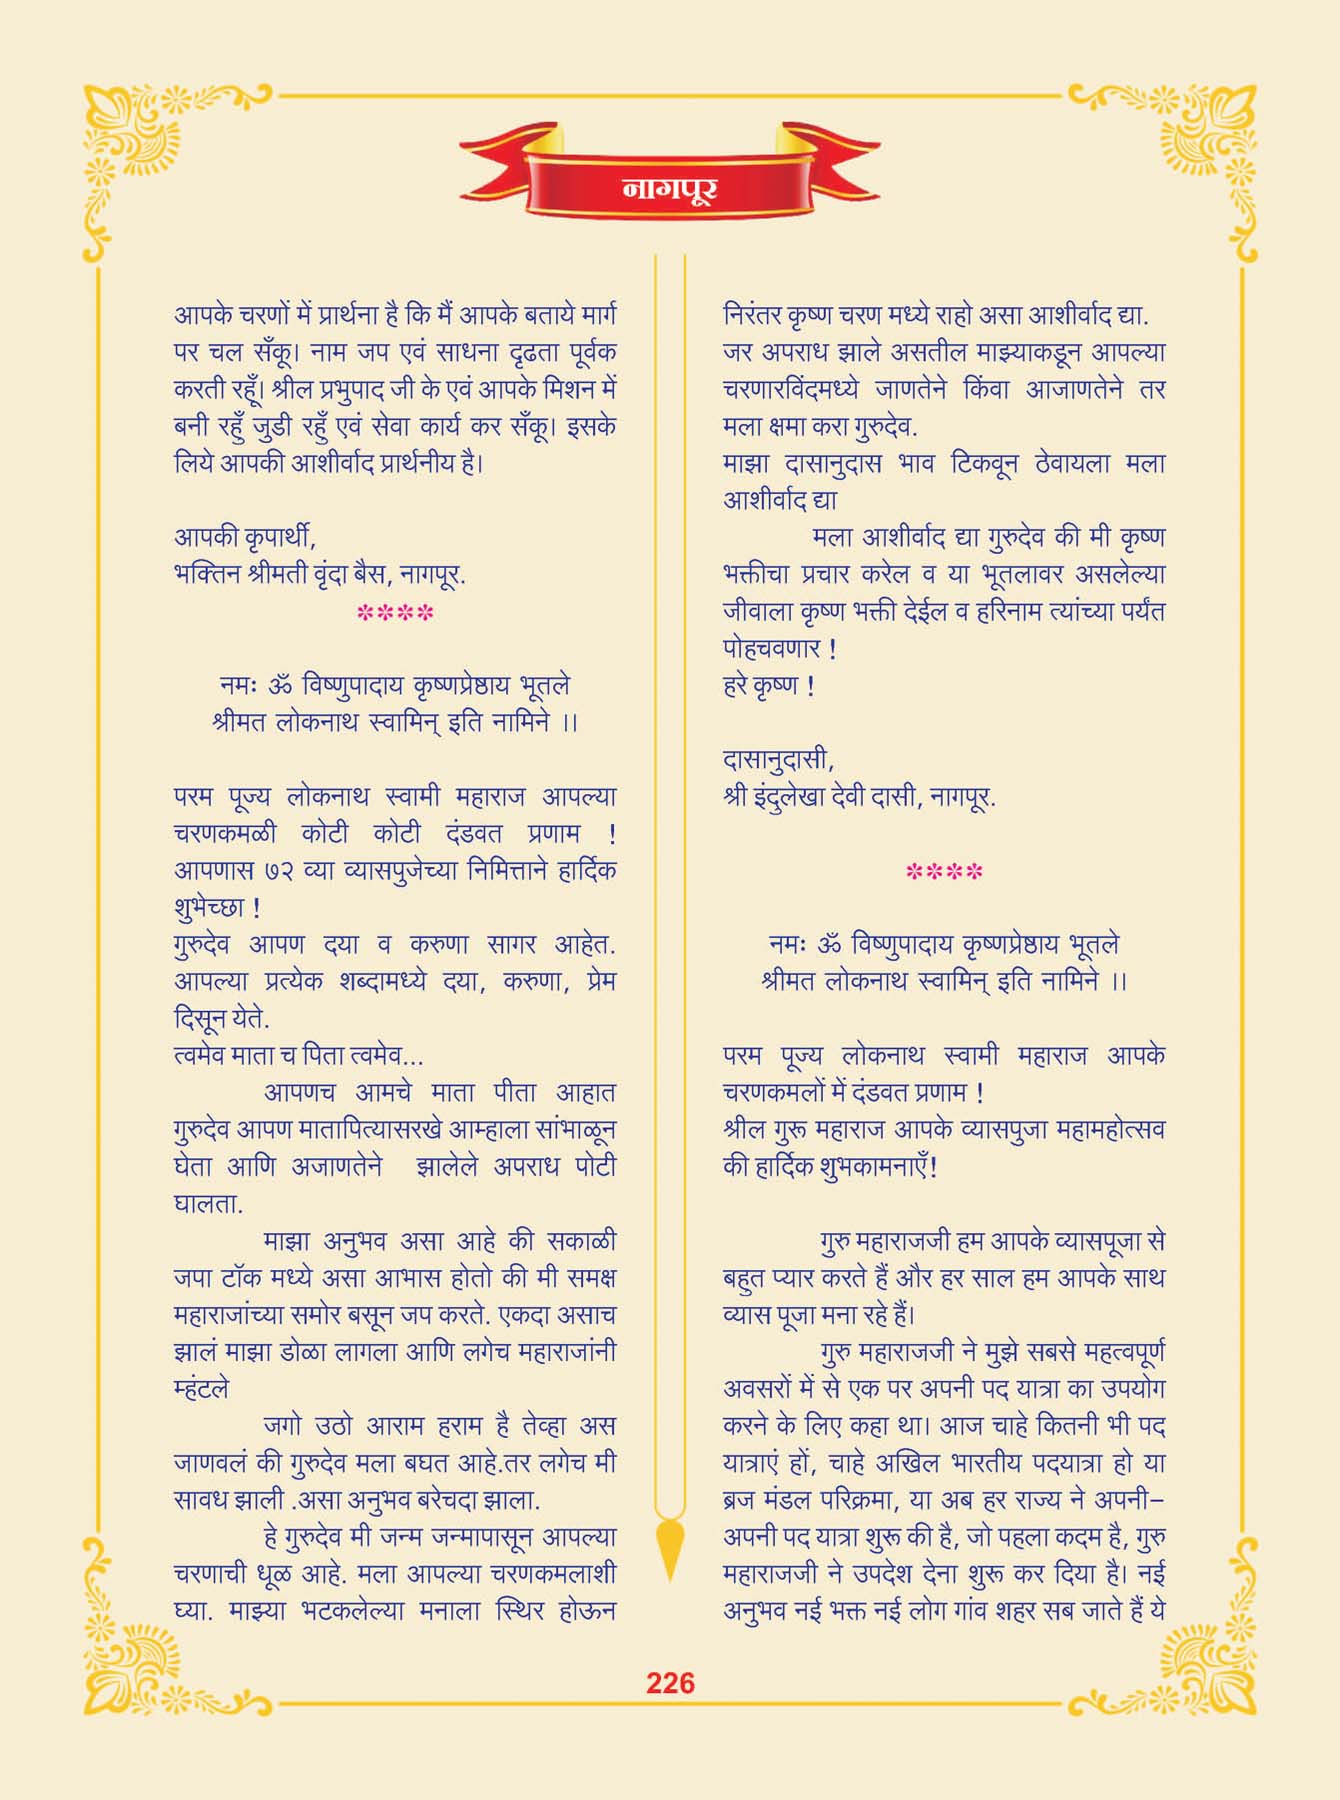 नागपूर
आपके चरणों में प्रार्थना है कि मैं आपके बताये मार्ग
पर चल सँकू। नाम जप एवं साधना दृढता पूर्वक
करती रहूँ। श्रील प्रभुपाद जी के एवं आपके मिशन में
बनी रहुँ जुडी रहुँ एवं सेवा कार्य कर सँकू। इसके
लिये आपकी आशीर्वाद प्रार्थनीय है।
आपकी कृपार्थी,
भक्तिन श्रीमती वृंदा बैस, नागपूर.
****
नमः ॐ विष्णुपादाय कृष्णप्रेष्ठाय भूतले
श्रीमत लोकनाथ स्वामिन् इति नामिने ।।
परम पूज्य लोकनाथ स्वामी महाराज आपल्या
चरणकमळी कोटी कोटी दंडवत प्रणाम !
आपणास ७२ व्या व्यासपुजेच्या निमित्ताने हार्दिक
शुभेच्छा !
गुरुदेव आपण दया व करुणा सागर आहेत.
आपल्या प्रत्येक शब्दामध्ये दया, करुणा, प्रेम
दिसून येते.
त्वमेव माता च पिता त्वमेव...
आपणच आमचे माता पीता आहात
गुरुदेव आपण मातापित्यासरखे आम्हाला सांभाळून
घेता आणि अजाणतेने झालेले अपराध पोटी
घालता.
माझा अनुभव असा आहे की सकाळी
जपा टॉक मध्ये असा आभास होतो की मी समक्ष
महाराजांच्या समोर बसून जप करते. एकदा असाच
झालं माझा डोळा लागला आणि लगेच महाराजांनी
म्हंटले
जगो उठो आराम हराम है तेव्हा अस
जाणवलं की गुरुदेव मला बघत आहे.तर लगेच मी
सावध झाली .असा अनुभव बरेचदा झाला.
हे गुरुदेव मी जन्म जन्मापासून आपल्या
चरणाची धूळ आहे. मला आपल्या चरणकमलाशी
घ्या. माझ्या भटकलेल्या मनाला स्थिर होऊन
निरंतर कृष्ण चरण मध्ये राहो असा आशीर्वाद द्या.
जर अपराध झाले असतील माझ्याकडून आपल्या
चरणारविंदमध्ये जाणतेने किंवा आजाणतेने तर
मला क्षमा करा गुरुदेव.
माझा दासानुदास भाव टिकवून ठेवायला मला
आशीर्वाद द्या
मला आशीर्वाद द्या गुरुदेव की मी कृष्ण
भक्तीचा प्रचार करेल व या भूतलावर असलेल्या
जीवाला कृष्ण भक्ती देईल व हरिनाम त्यांच्या पर्यंत
पोहचवणार !
हरे कृष्ण !
दासानुदासी,
श्री इंदुलेखा देवी दासी, नागपूर.
****
नमः ॐ विष्णुपादाय कृष्णप्रेष्ठाय भूतले
श्रीमत लोकनाथ स्वामिन् इति नामिने ।।
परम पूज्य लोकनाथ स्वामी महाराज आपके
चरणकमलों में दंडवत प्रणाम !
श्रील गुरू महाराज आपके व्यासपुजा महामहोत्सव
की हार्दिक शुभकामनाएँ!
गुरु महाराजजी हम आपके व्यासपूजा से
बहुत प्यार करते हैं और हर साल हम आपके साथ
व्यास पूजा मना रहे हैं।
गुरु महाराजजी ने मुझे सबसे महत्वपूर्ण
अवसरों में से एक पर अपनी पद यात्रा का उपयोग
करने के लिए कहा था। आज चाहे कितनी भी पद
यात्राएं हों, चाहे अखिल भारतीय पदयात्रा हो या
ब्रज मंडल परिक्रमा, या अब हर राज्य ने अपनी-
अपनी पद यात्रा शुरू की है, जो पहला कदम है, गुरु
महाराजजी ने उपदेश देना शुरू कर दिया है। नई
अनुभव नई भक्त नई लोग गांव शहर सब जाते हैं ये
226